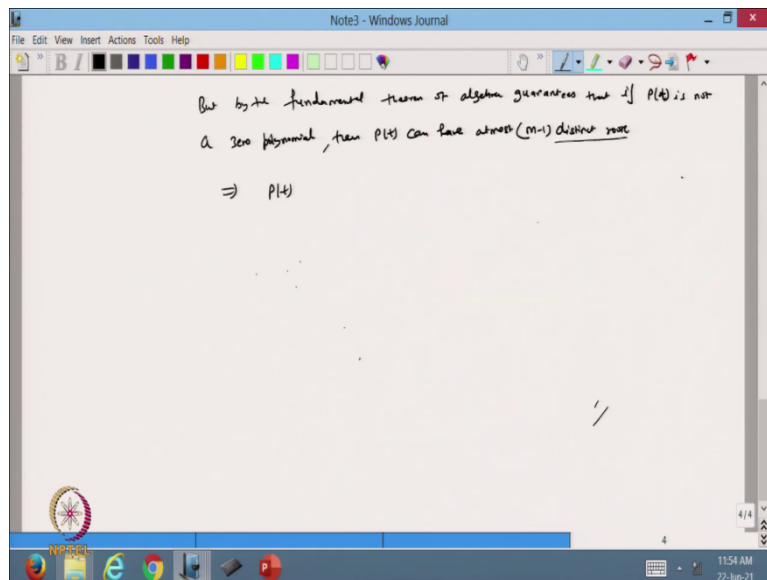 Note3 - Windows Journal
File Edit View Insert Actions Tools Help
But by the fundamental theorem of algebra guarantees that if P(t) is not
a zero polynomial, then P(t) can have atmost (m-1) distinct root
⇒ P(t)
4/4
4
NPTEL
11:54 AM
22-Jun-21